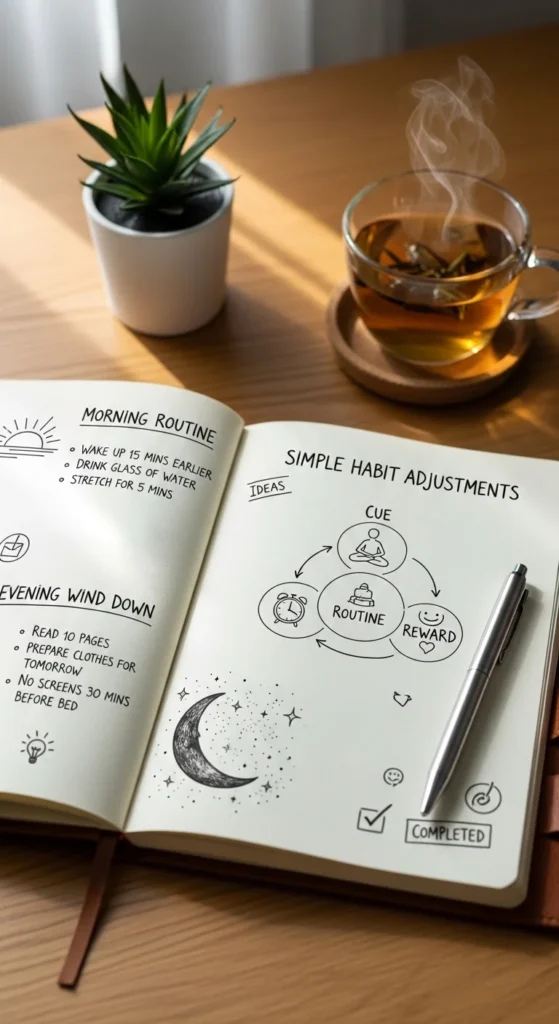 MORNING ROUTINE
WAKE UP 15 MINS EARLIER
DRINK GLASS OF WATER
STRETCH FOR 5 MINS
EVENING WIND DOWN
READ 10 PAGES
PREPARE CLOTHES FOR
TOMORROW
NO SCREENS 30 MINS
BEFORE BED
SIMPLE HABIT ADJUSTMENTS
IDEAS
CUE
ROUTINE
REWARD
COMPLETED